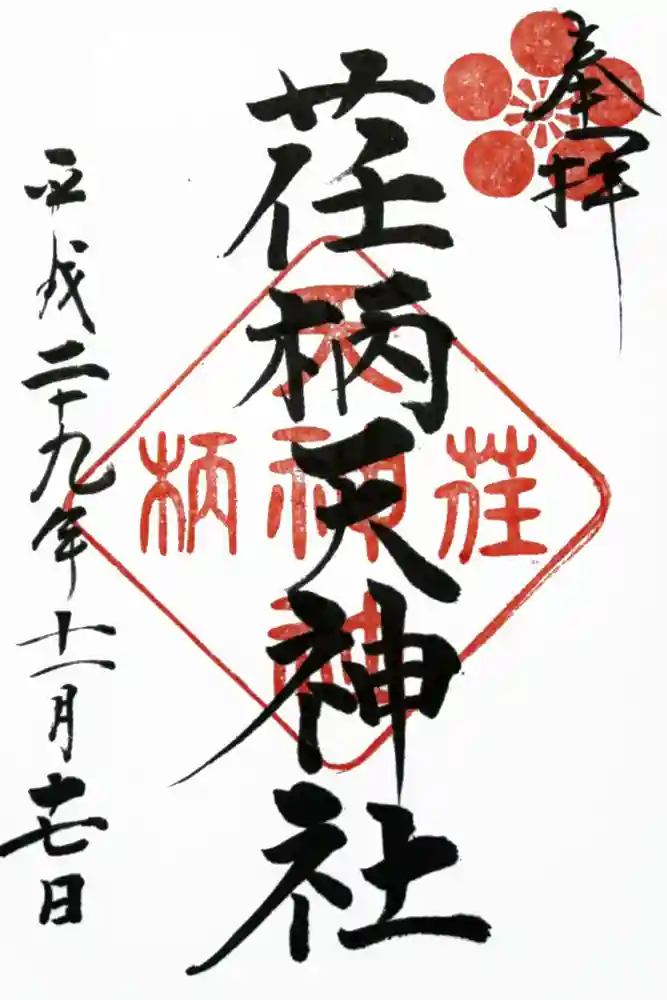 奉拝
荏柄天神社
平成二十九年十一月十七日
天
荏神柄